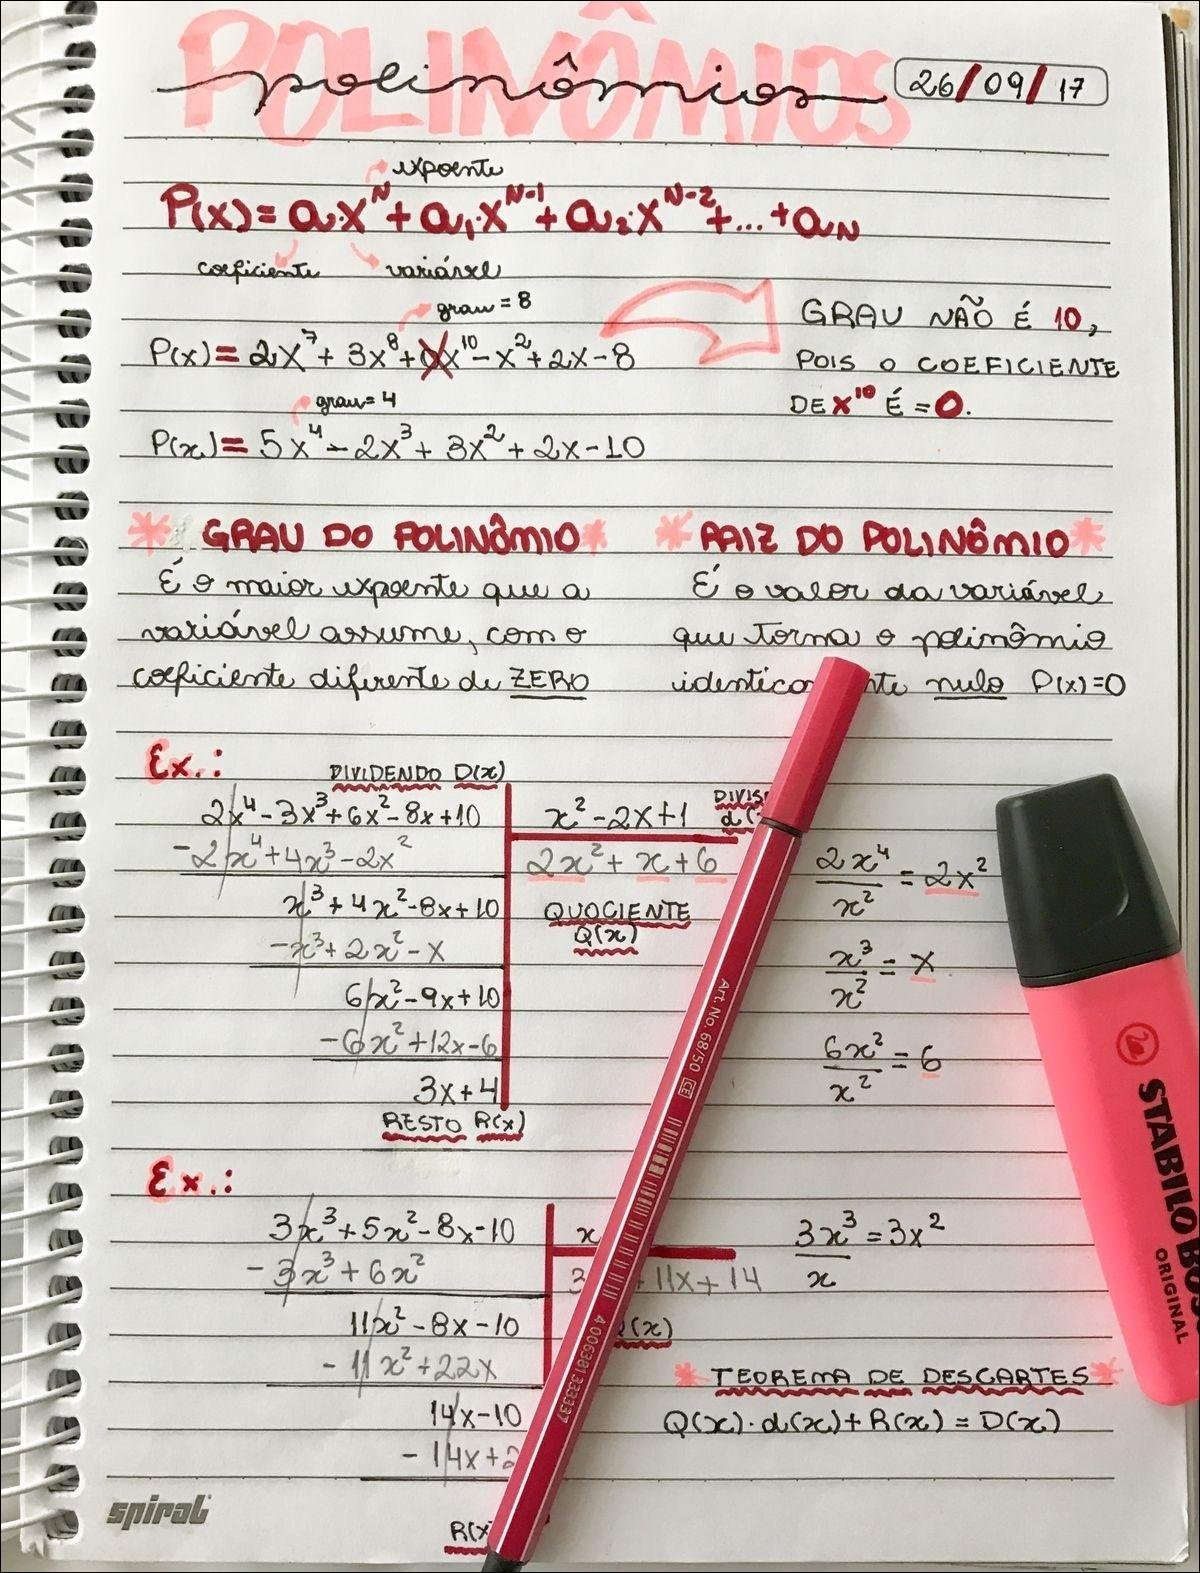 POLINÔMIOS
polinômios
26/09/17
expoente
P(x) = a·x^N + a₁·x^N-1 + a₂·x^N-2 + ... + aN
coeficiente variável
grau = 8
P(x) = 2x⁷ + 3x⁸ + 0x¹⁰ - x² + 2x - 8
GRAU NÃO É 10,
POIS O COEFICIENTE
DE x¹⁰ É = 0.
grau = 4
P(x) = 5x⁴ - 2x³ + 3x² + 2x - 10
* GRAU DO POLINÔMIO *
É o maior expoente que a
variável assume, com o
coeficiente diferente de ZERO
* RAIZ DO POLINÔMIO *
É o valor da variável
que torna o polinômio
nulo P(x)=0
Ex.:
DIVIDENDO D(x)
2x⁴ - 3x³ + 6x² - 8x + 10
x² - 2x + 1
-2x⁴ + 4x³ - 2x²
2x² + x + 6
x³ + 4x² - 8x + 10
QUOCIENTE
Q(x)
-x³ + 2x² - x
6x² - 9x + 10
-6x² + 12x - 6
3x + 4
RESTO R(x)
2x⁴/x² = 2x²
x³/x² = x
6x²/x² = 6
Ex.:
3x³ + 5x² - 8x - 10
x
-3x³ + 6x²
+ 11x + 14
11x² - 8x - 10
(x)
-11x² + 22x
14x - 10
-14x + 2
R(x)
3x³/x = 3x²
* TEOREMA DE DESCARTES *
Q(x) · d(x) + R(x) = D(x)
spiral
Art. No. 68/50 CE
4 006381 333337
STABILO BOSS
ORIGINAL